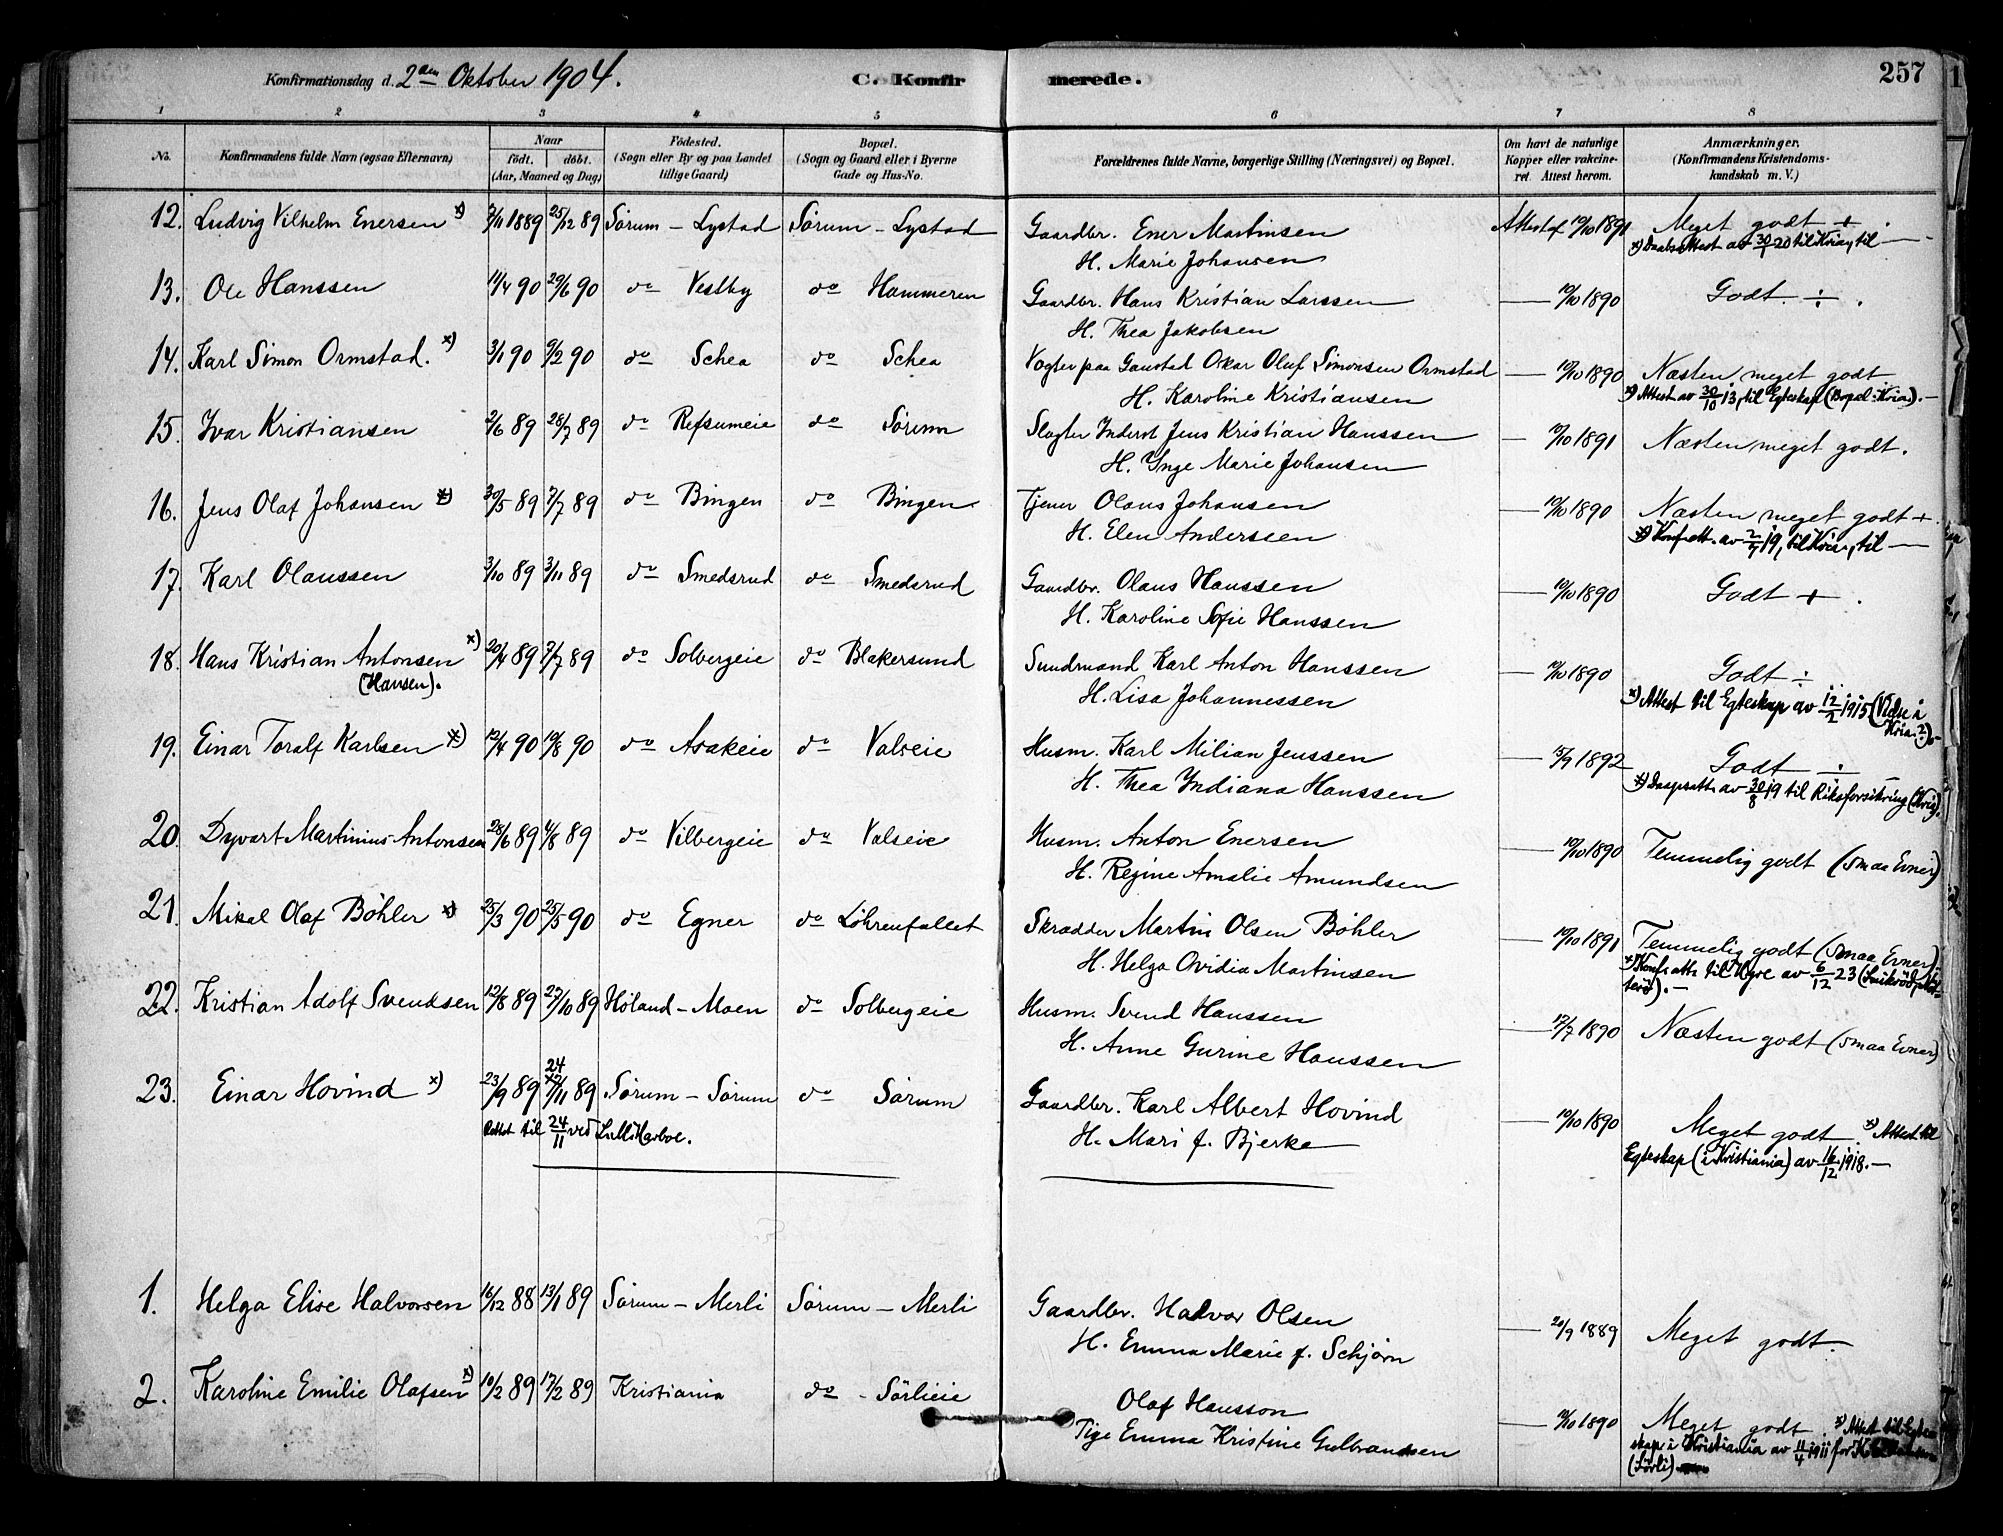 Konfirmationsdag d. 2den Oktober 1904. C. Konfirmerede. 257
1 2 3 4 5 6 7 8
No. Konfirmandens fulde Navn (ogsaa Efternavn) Naar født. døbt. (Aar, Maaned og Dag) Fødested. (Sogn eller By og paa Landet tillige Gaard) Bopæl. (Sogn og Gaard eller i Byerne Gade og Hus-No. Forældrenes fulde Navne, borgerlige Stilling (Næringsvei) og Bopæl. Om havt de naturlige Kopper eller vakcineret. Attest herom. Anmærkninger. (Konfirmandens Kristendomskundskab m. V.)
12. Ludvig Vilhelm Enersen x) 7/11 1889 25/12 89 Sørum - Lystad Sørum - Lystad Gaardbr. Ener Martinsen Attest af 19/10 1891 Meget godt +
H. Marie Johansen x) Daabsattest av 30/7 20 til Kria, til —
13. Ole Hanssen 11/4 90 29/6 90 do Vestby do Hammeren Gaardbr. Hans Kristian Larssen — 10/10 1890 Godt. ÷
H. Thea Jakobsen
14. Karl Simon Ormstad. x) 3/1 90 9/2 90 do Schea do Schea Vogter paa Gaustad Oskar Oluf Simonsen Ormstad — 10/10 1890 Næsten meget godt
H. Karoline Kristiansen x) Attest av 30/10 13, til Egteskap (Bopæl: Kria). —
15. Ivar Kristiansen 2/6 89 28/7 89 do Refsumeie do Sørum Slagter Inderst Jens Kristian Hanssen — 19/10 1891 Næsten meget godt.
H. Inge Marie Johansen
16. Jens Olaf Johansen x) 30/5 89 7/7 89 do Bingen do Bingen Tjener Olaus Johansen — 10/10 1890 Næsten meget godt +
H. Elen Anderssen x) Konf.att. av 2/7 19, til Kria, til —
17. Karl Olaussen 3/10 89 3/11 89 do Smedsrud do Smedsrud Gaardbr. Olaus Hanssen — 10/10 1890 Godt +
H. Karoline Sofie Hanssen
18. Hans Kristian Antonsen x) 20/4 89 7/7 89 do Solbergeie do Blakersund Sundmand Karl Anton Hanssen — 10/10 1890 Godt ÷
(Hansen). H. Lisa Johannessen x) Attest til Egteskap av 12/2 1915 (Vidse i
Kria. ?) —
19. Einar Toralf Karlsen x) 12/4 90 10/8 90 do Asakeie do Valseie Husm. Karl Milian Jenssen — 15/9 1892 Godt ÷
H. Thea Indiana Hanssen x) Daapsatt. av 30/8 19 til Riksforsikring (Kria).
20. Dyvart Martinius Antonsen 28/6 89 4/8 89 do Vilbergeie do Valseie Husm. Anton Enersen — 10/10 1890 Temmelig godt (smaa Evner)
H. Regine Amalie Amundsen
21. Mikal Olaf Bøhler x) 25/3 90 25/5 90 do Egner do Løhrenfallet Skrædder Martin Olsen Bøhler — 19/10 1891 Temmelig godt (smaa Evner)
H. Helga Ovidia Martinsen x) Konf.att. til av 6/12 23
22. Kristian Adolf Svendsen 12/8 89 27/10 89 Høland - Moen do Solbergeie Husm. Svend Hanssen — 12/7 1890 Næsten godt (smaa Evner)
H. Anne Gurine Hanssen
23. Einar Hovind x) 23/9 89 24/11 89 Sørum - Sørum do Sørum Gaardbr. Karl Albert Hovind — 10/10 1890 Meget godt. x) Attest til
Rettet til 24/11 ved L. M. Harboe. H. Mari f. Bjerke Egteskap (i Kristiania) av 16/12 1918. —
1. Helga Elise Halvorsen 16/12 88 13/1 89 Sørum - Merli Sørum - Merli Gaardbr. Halvor Olsen — 20/9 1889 Meget godt.
H. Emma Marie f. Schjørn
2. Karoline Emilie Olafsen x) 10/2 89 17/2 89 Kristiania do - Sørlieie Olaf Hansson — 10/10 1890 Meget godt. x) Attest til Egte-
Pige Emma Kristine Gulbrandsen skap i Kristiania av 11/4 1911 for
(Sørli)